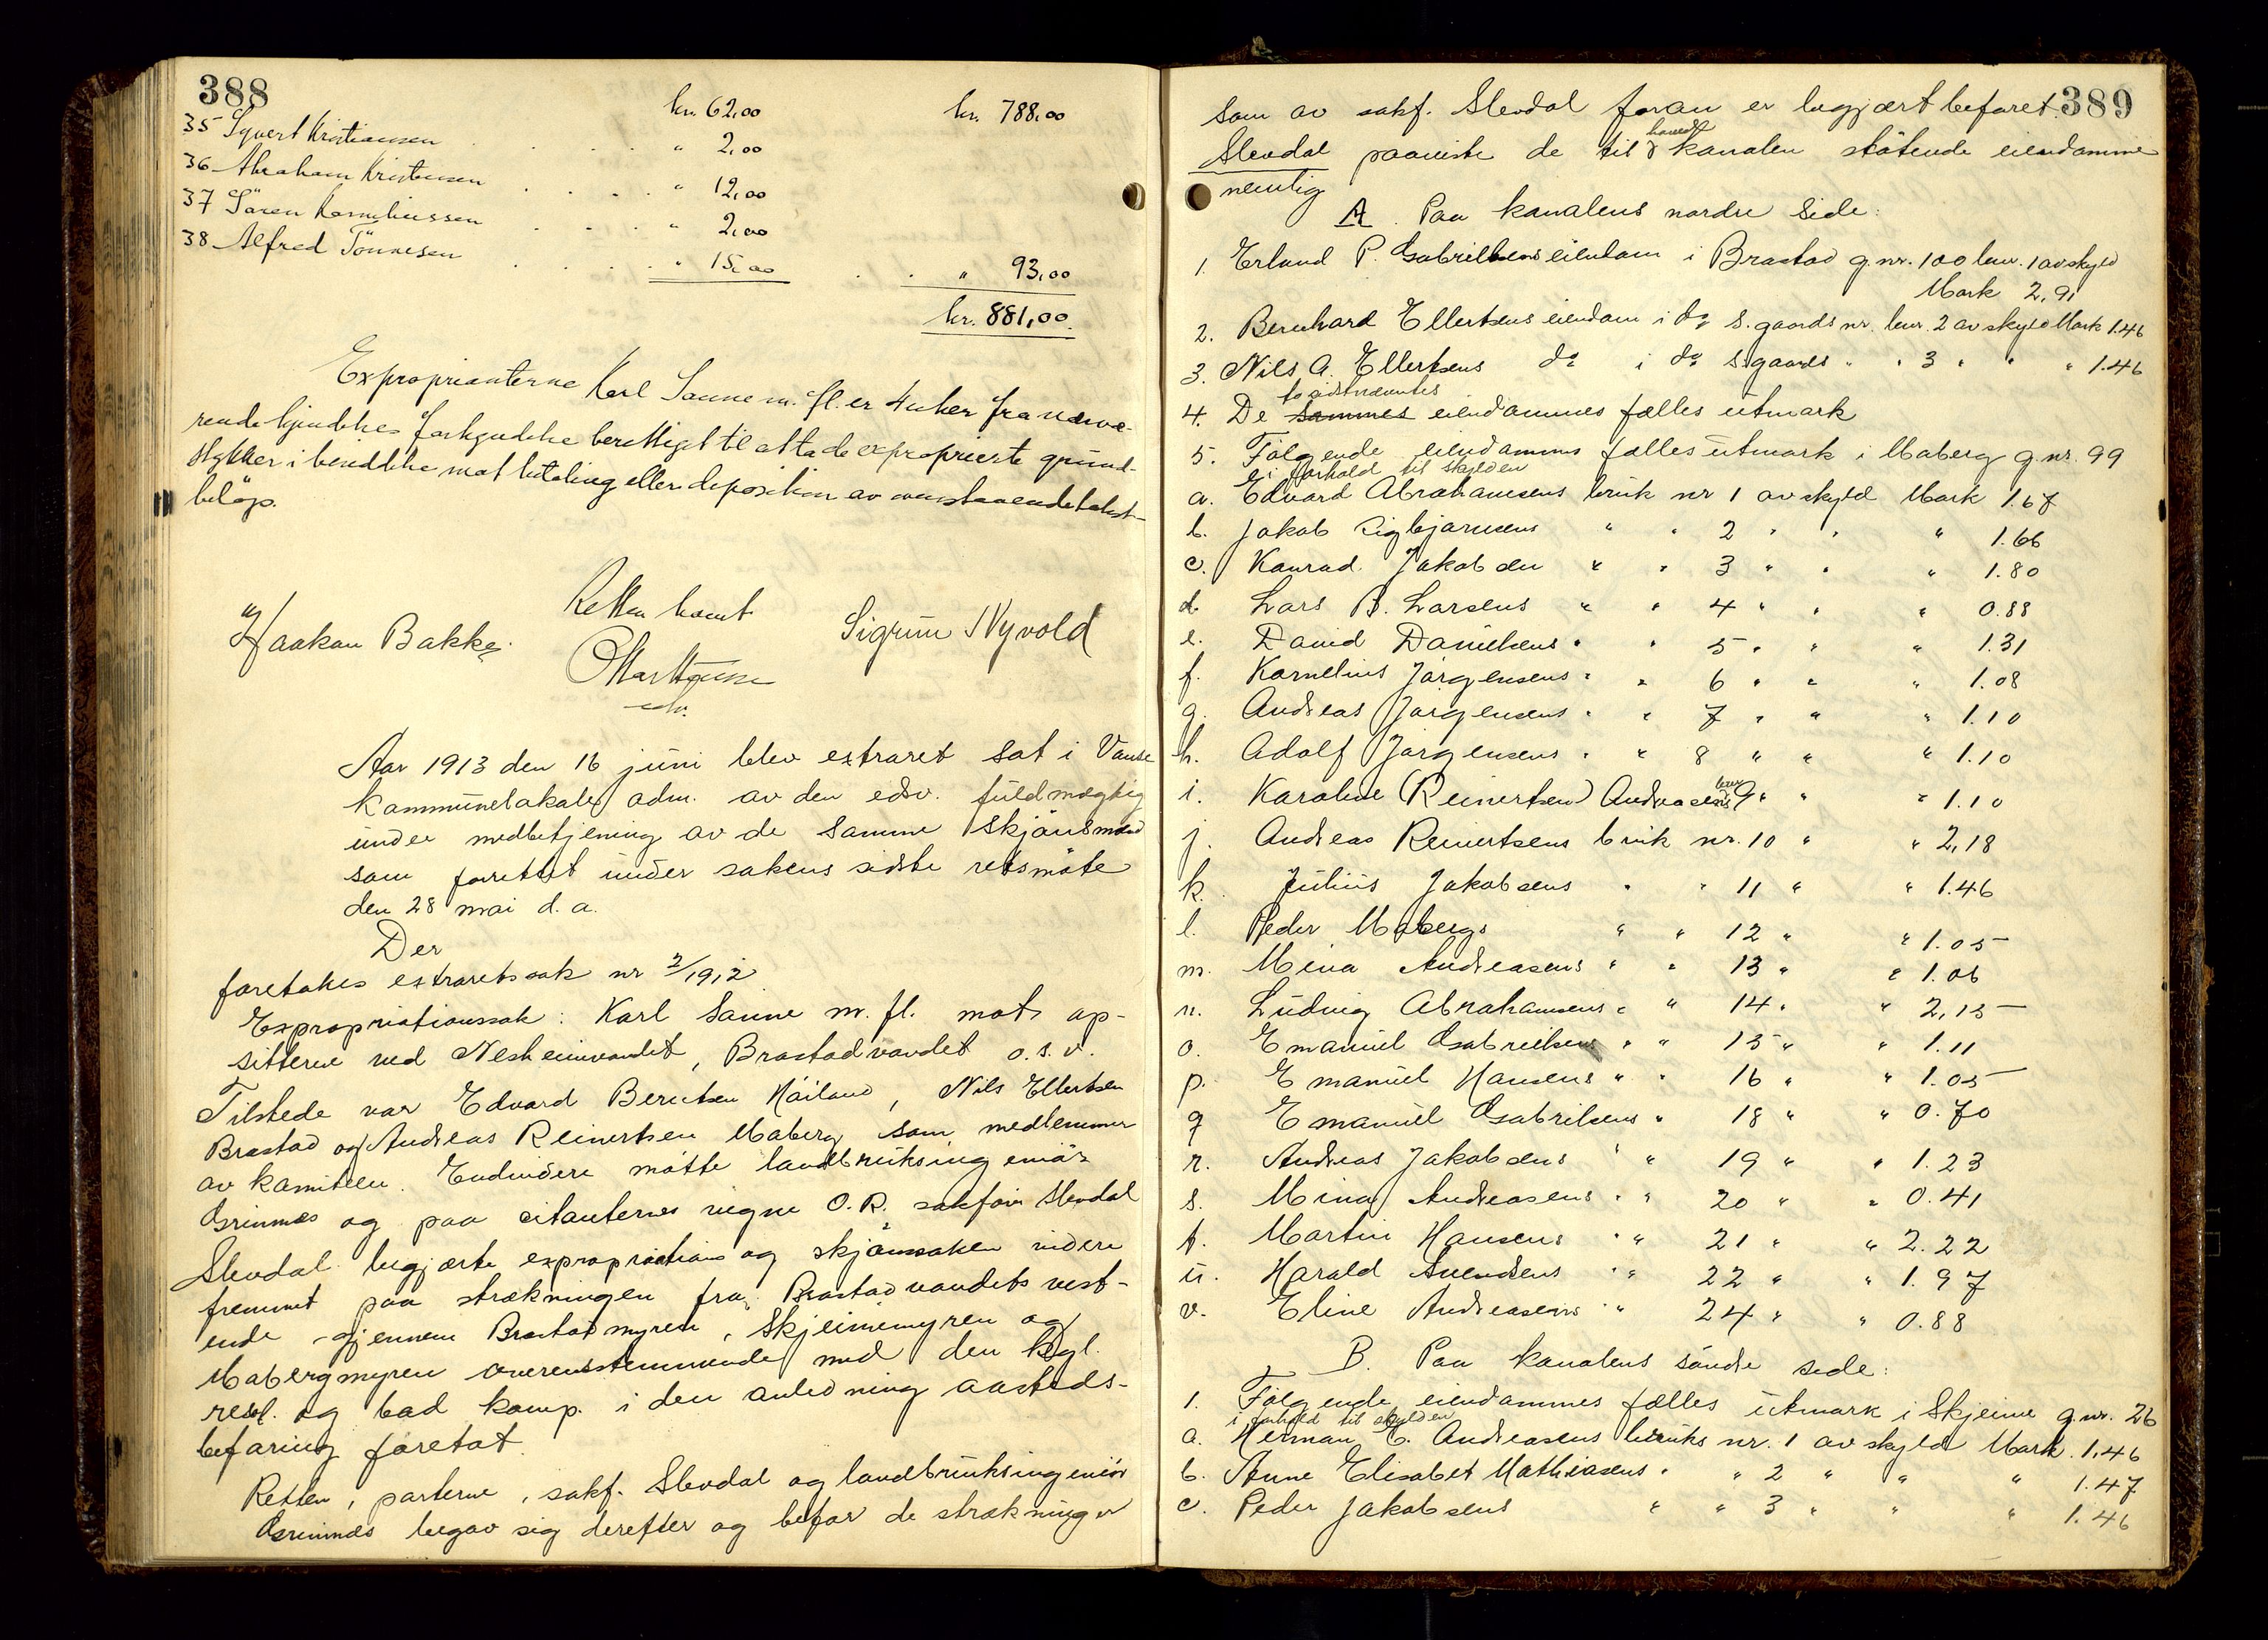 388
kr. 62,00 kr. 788,00
35 Syvert Kristiansen . . . . " 2,00
36 Abraham Kristensen . . . . " 12,00
37 Sören Korneliussen . . . . " 2,00
38 Alfred Tönnesen . . . . " 15,00 . . " 93,00
kr. 881,00.
Exproprianterne Karl Sanne m. fl. er 4 uker fra nærvæ-
rende kjendelses forkyndelse berettiget til at ta de exproprierte grund-
stykker i besiddelse mot betaling eller deposition av ovenstaaende takst-
beløp.
Retten hævet
Haakon Bakke. Sigrun Nyvold
Aar 1913 den 16 juni blev extraret sat i Vanse
kommunelokale adm. av den edsv. fuldmægtig
under medbetjening av de samme skjönsmænd
som forrettet under sakens sidste retsmöte
den 28 mai d. a.
Der
foretokes extraretssak nr 2/1912
Expropriationssak: Karl Sanne m. fl. mot op-
sitterne ved Nesheimvandet, Brastadvandet o. s. v.
Tilstede var Edvard Berntsen Höiland, Nils Ellertsen
Brastad og Andreas Reinertsen Maberg som medlemmer
av komiteen. Endvidere mötte landbruksingeniör
Grimnes og paa citanternes vegne O. R. sakförer Slevdal
Slevdal begjærte expropriations og skjönssaken videre
fremmet paa strækningen fra Brastadvandets vest-
ende gjennem Brastadmyren, Skjeimemyren og
Mabergmyren overensstemmende med den kgl.
resol. og bad komp. i den anledning aasteds-
befaring foretat.
Retten, parterne, sakf. Slevdal og landbruksingeniör
Grimnes begav sig derefter og befor de strækninger
389
som av sakf. Slevdal foran er begjært befaret.
Slevdal paaviste de til hoved kanalen stötende eiendomme
nemlig
A. Paa kanalens nordre side:
1. Erland P. Gabrielsens eiendom i Brastad g. nr. 100 bnr. 1 av skyld
Mark 2,91
2. Bernhard Ellertsens eiendom i do s. gaards nr. bnr. 2 av skyld Mark 1.46
3. Nils A. Ellertsens do i do s. gaards " " 3 " " " 1.46
4. De to sidstnævntes sammes eiendommes fælles utmark
5. Fölgende eiendommes fælles utmark i Maberg g. nr. 99
i forhold til skylden
a. Edvard Abrahamsens bruk nr 1 av skyld Mark 1.67
b. Jakob Sigbjörnsens " " 2 " " " 1.66
c. Konrad Jakobsen " " 3 " " " 1.80
d. Lars B. Larsens " " 4 " " " 0.88
e. David Danielsens " " 5 " " " 1.31
f. Kornelius Jörgensens " " 6 " " " 1.08
g. Andreas Jörgensens " " 7 " " " 1.10
h. Adolf Jörgensens " " 8 " " " 1.10
i. Karoline (Reinertsen) Andreasens bnr 9 " " " 1.10
j. Andreas Reinertsens bruk nr. 10 " " 2,18
k. Julius Jakobsens " " 11 " " 1.46
l. Peder Mabergs " " 12 " " 1.05
m. Mina Andreasens " " 13 " " 1.06
n. Ludvig Abrahamsens " " 14 " " 2,15
o. Emanuel Gabrielsens " " 15 " " 1.11
p. Emanuel Hansens " " 16 " " 1.05
q Emanuel Gabrielsens " 18 " " 0.70
r. Andreas Jakobsens " " 19 " " 1.23
s. Mina Andreasens " " 20 " " 0.41
t. Martin Hansens " " 21 " " 2.22
u. Harald Svendsens " " 22 " " 1.97
v. Eline Andreasens " " 24 " " 0.88
B. Paa kanalens söndre side:
1. Fölgende eiendommes fælles utmark i Skjeime g. nr. 26
i forhold til skylden
a. Herman E. Andreasens bruks nr. 1 av skyld Mark. 1,46
b. Anne Elisabet Mathiasens " " 2 " " " 1.47
c. Peder Jakobsens " " 3 " " " 1.46